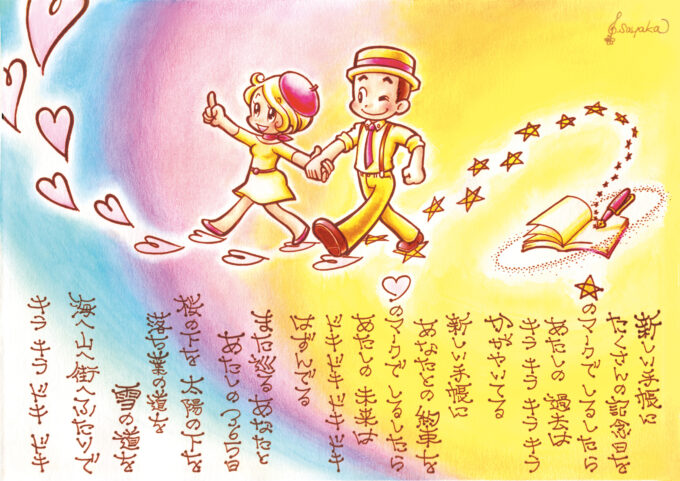 Sayaka
新しい手帳に
たくさんの記念日を
★のマークでしるしたら
あたしの過去は
キラキラ キラキラ
かがやいてる
新しい手帳に
あなたとの約束を
♡のマークでしるしたら
あたしの未来は
ドキドキドキドキ
はずんでる
また巡るあなたと
あたしの365日
桜の下を 太陽の下を
落ち葉の道を
雪の道を
海へ山へ街へふたりで
キラ キラ ドキ ドキ